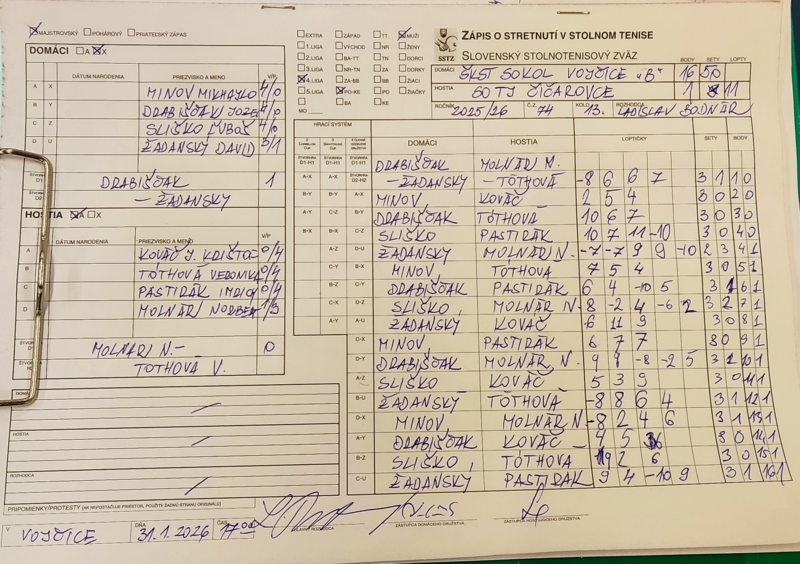 MAJSTROVSKÝ POHÁROVÝ PRIATEĽSKÝ ZÁPAS
DOMÁCI A X
DÁTUM NARODENIA PRIEZVISKO A MENO V/P
A X MINOV MIKHAYLO 4/0
B Y DRABIŠČÁK JOZEF 4/0
C Z SLIŠKO ĽUBOŠ 4/0
D U ŽADANSKÝ DAVID 3/1
DRABIŠČAK 1
- ŽADANSKY
HOSTIA A X
DÁTUM NARODENIA PRIEZVISKO A MENO V/P
A KOVÁČ J. 0/4
B TÓTHOVÁ VERONIKA 0/4
C PASTIRÁK 0/4
D MOLNÁR NORBERT 1/3
MOLNÁR N. - 0
TÓTHOVÁ V.
HOSTIA
ROZHODCA
PRIPOMIENKY/PROTESTY (AK NEPOSTAČUJE PRIESTOR, POUŽITE ZADNÚ STRANU ORIGINÁLU)
V VOJČICE DŇA 31.1.2026 ČAS 17 00
HLAVNÝ ROZHODCA
ZÁSTUPCA DOMÁCEHO DRUŽSTVA
ZÁSTUPCA HOSŤUJÚCEHO DRUŽSTVA
EXTRA ZÁPAD TT MUŽI
1.LIGA VÝCHOD NR ŽENY
2.LIGA BA-TT TN DORCI
3.LIGA NR-TN ZA DORKY
4.LIGA ZA-BB BB ŽIACI
5.LIGA PO-KE PO ŽIAČKY
MO KE
ZÁPIS O STRETNUTÍ V STOLNOM TENISE
SSTZ SLOVENSKÝ STOLNOTENISOVÝ ZVÄZ
BODY SETY LOPTY
DOMÁCI ŠKST SOKOL VOJČICE "B" 16 50
HOSTIA TJ ČIČAROVCE 1 11
ROČNÍK 2025/26 Č.Z. 74 KOLO 13. ROZHODCA LADISLAV BODNÁR
HRACÍ SYSTÉM DOMÁCI HOSTIA LOPTIČKY SETY BODY
DRABIŠČAK MOLNÁR N.
- ŽADANSKY - TÓTHOVÁ -8 6 6 7 3 1 1 0
MINOV KOVÁČ 2 5 4 3 0 2 0
DRABIŠČAK TÓTHOVA 10 6 7 3 0 3 0
SLIŠKO PASTIRÁK 10 7 11 -10 3 0 4 0
ŽADANSKY MOLNÁR N. -7 -7 9 9 -10 2 3 4 1
MINOV TÓTHOVA 7 5 4 3 0 5 1
DRABIŠČAK PASTIRÁK 6 4 -10 5 3 1 6 1
SLIŠKO MOLNÁR N -8 -2 4 -6 2 3 2 7 1
ŽADANSKY KOVÁČ 6 11 9 3 0 8 1
MINOV PASTIRÁK 6 7 7 3 0 9 1
DRABIŠČAK MOLNÁR N. 9 -8 -2 5
SLIŠKO KOVÁČ 5 3 9 3 0 11 1
ŽADANSKY TÓTHOVÁ -8 8 6 4 3 1 12 1
MINOV MOLNÁR N -8 2 4 6 3 1 13 1
DRABIŠČAK KOVÁČ 4 5 3 0 14 1
SLIŠKO TÓTHOVA 2 6 3 0 15 1
ŽADANSKY PASTIRÁK 9 4 -10 9 3 1 16 1